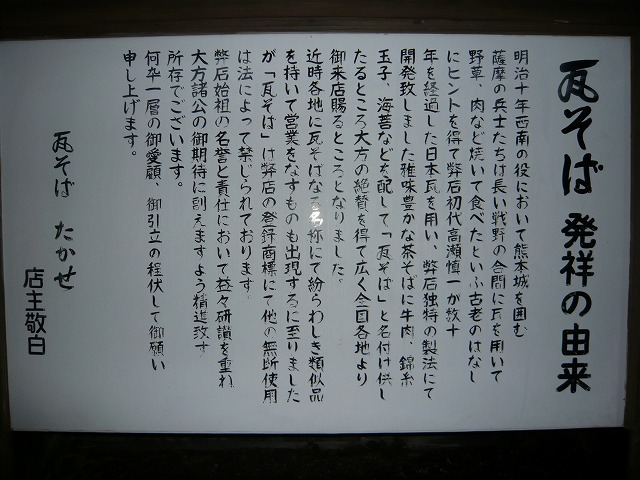 瓦そば 発祥の由来
明治十年西南の役において熊本城を囲む
薩摩の兵士たちは長い戦野の合間に瓦を用いて
野草、肉など焼いて食べたといふ古老のはなし
にヒントを得て弊石初代高瀬慎一が数十
年を経過した日本瓦を用い、弊石独特の製法にて
開発致しました雅味豊かな茶そばに牛肉、錦糸
玉子、海苔などを配して「瓦そば」と名付け供し
たるところ大方の絶賛を得て広く全国各地より
御来店賜るところとなりました。
近時各地に瓦そばなる名称にて紛らわしき類似品
を持いて営業をなすものも出現するに至りました
が「瓦そば」は弊店の登録商標にて他の無断使用
は法によって禁じられております。
弊石始祖の名誉と責任において益々研讃を重ね
大方諸公の御期待に副えますよう精進致す
所存でございます。
何卒一層の御愛顧、御引立の程伏して御願い
申し上げます。
瓦そば たかせ
店主敬白